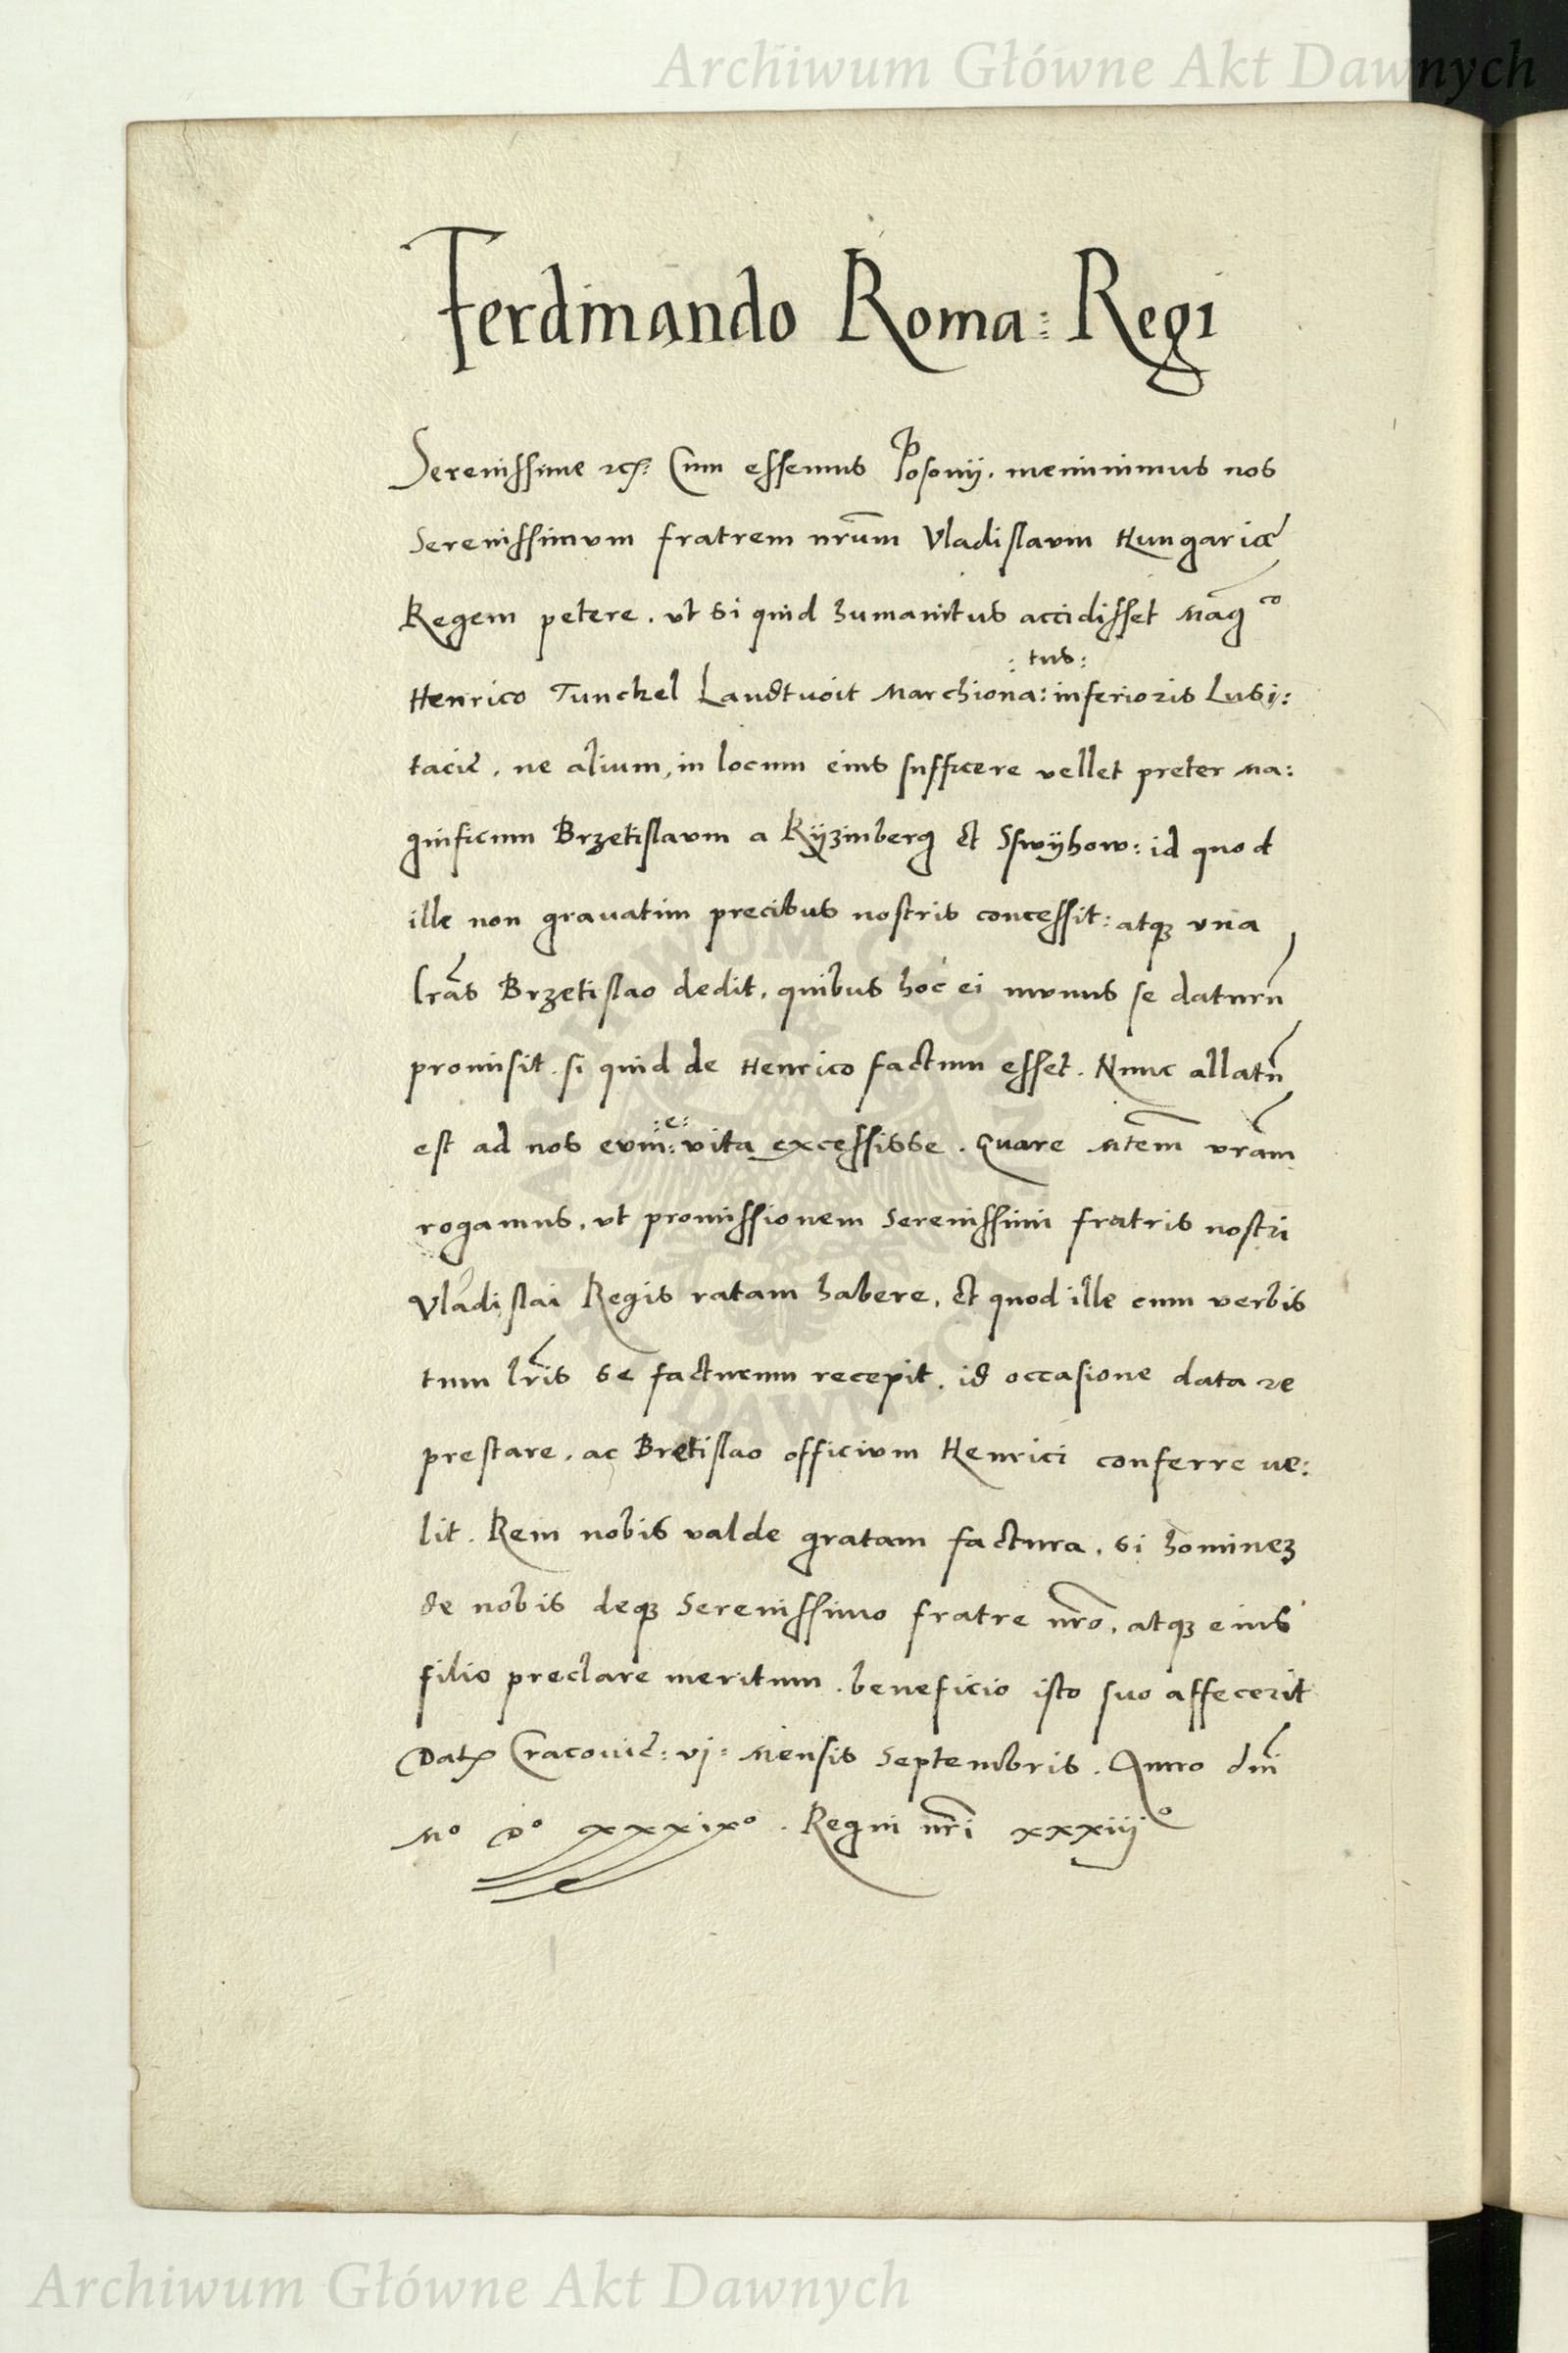 Archiwum Główne Akt Dawnych
Ferdinando Roma: Regi
Serenissime etc. Cum essemus Posonij. meminimus nos
Serenissimum fratrem nrūm Vladislaum Hungariæ
Regem petere. ut si quid humanitus accidisset Mag^co
: tus :
Henrico Tunckel Landtuoit Marchiona: inferioris Lusi:
tacię. ne alium, in locum eius sufficere vellet preter Ma:
gnificum Brzetislaum a Ryzmberg et Sswyhow: id quod
ille non gravatim precibus nostris concessit: atq3 una
lrās Brzetislao dedit. quibus hoc ei munus se daturū
promisit. si quid de Henrico factum esset. Nunc allatū
: e :
est ad nos eum: vita excessisse. Quare Mtēm vrām
rogamus, ut promissionem Serenissimi fratris nostri
Vladislai Regis ratam habere, et quod ille cum verbis
tum lrīs se facturum recepit. id occasione data re
prestare. ac Bretislao officium Henrici conferre ve:
lit. Rem nobis valde gratam factura. si hominez
de nobis deq3 Serenissimo fratre nrō. atq3 eius
filio preclare meritum. beneficio isto suo affecerit
Dat Cracovię: vj: Mensis Septembris. Anno dnī
Mº Dº xxxixº. Regni nrī xxxiijº
ARCHIWUM GŁÓWNE
AKT DAWNYCH
Archiwum Główne Akt Dawnych